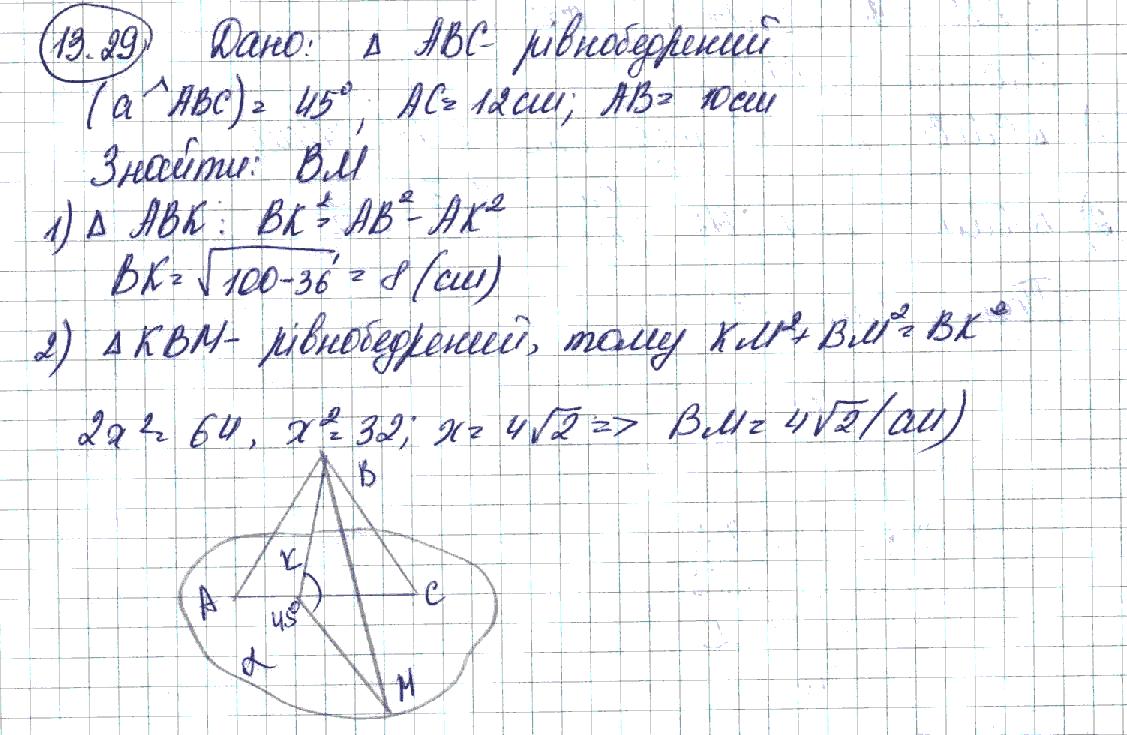 13.29 Дано: Δ ABC - рівнобедрений
(a^ABC) = 45°, AC = 12см; AB = 10см
Знайти: BM
1) Δ ABK: BK² = AB² - AK²
BK = √100-36 = 8 (см)
2) ΔKBM - рівнобедрений, тому KM² + BM² = BK²
2x² = 64, x² = 32; x = 4√2 => BM = 4√2 (см)
B
K
A
C
45°
α
M